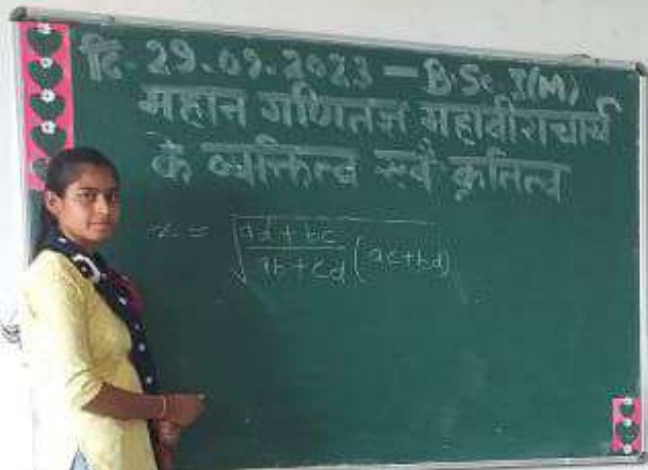 दि- 29.09.2023 - B.Sc. I(M)
महान गणितज्ञ महावीराचार्य
के व्यक्तित्व एवं कृतित्व
x = √((ad+bc)/(ab+cd) (ac+bd))